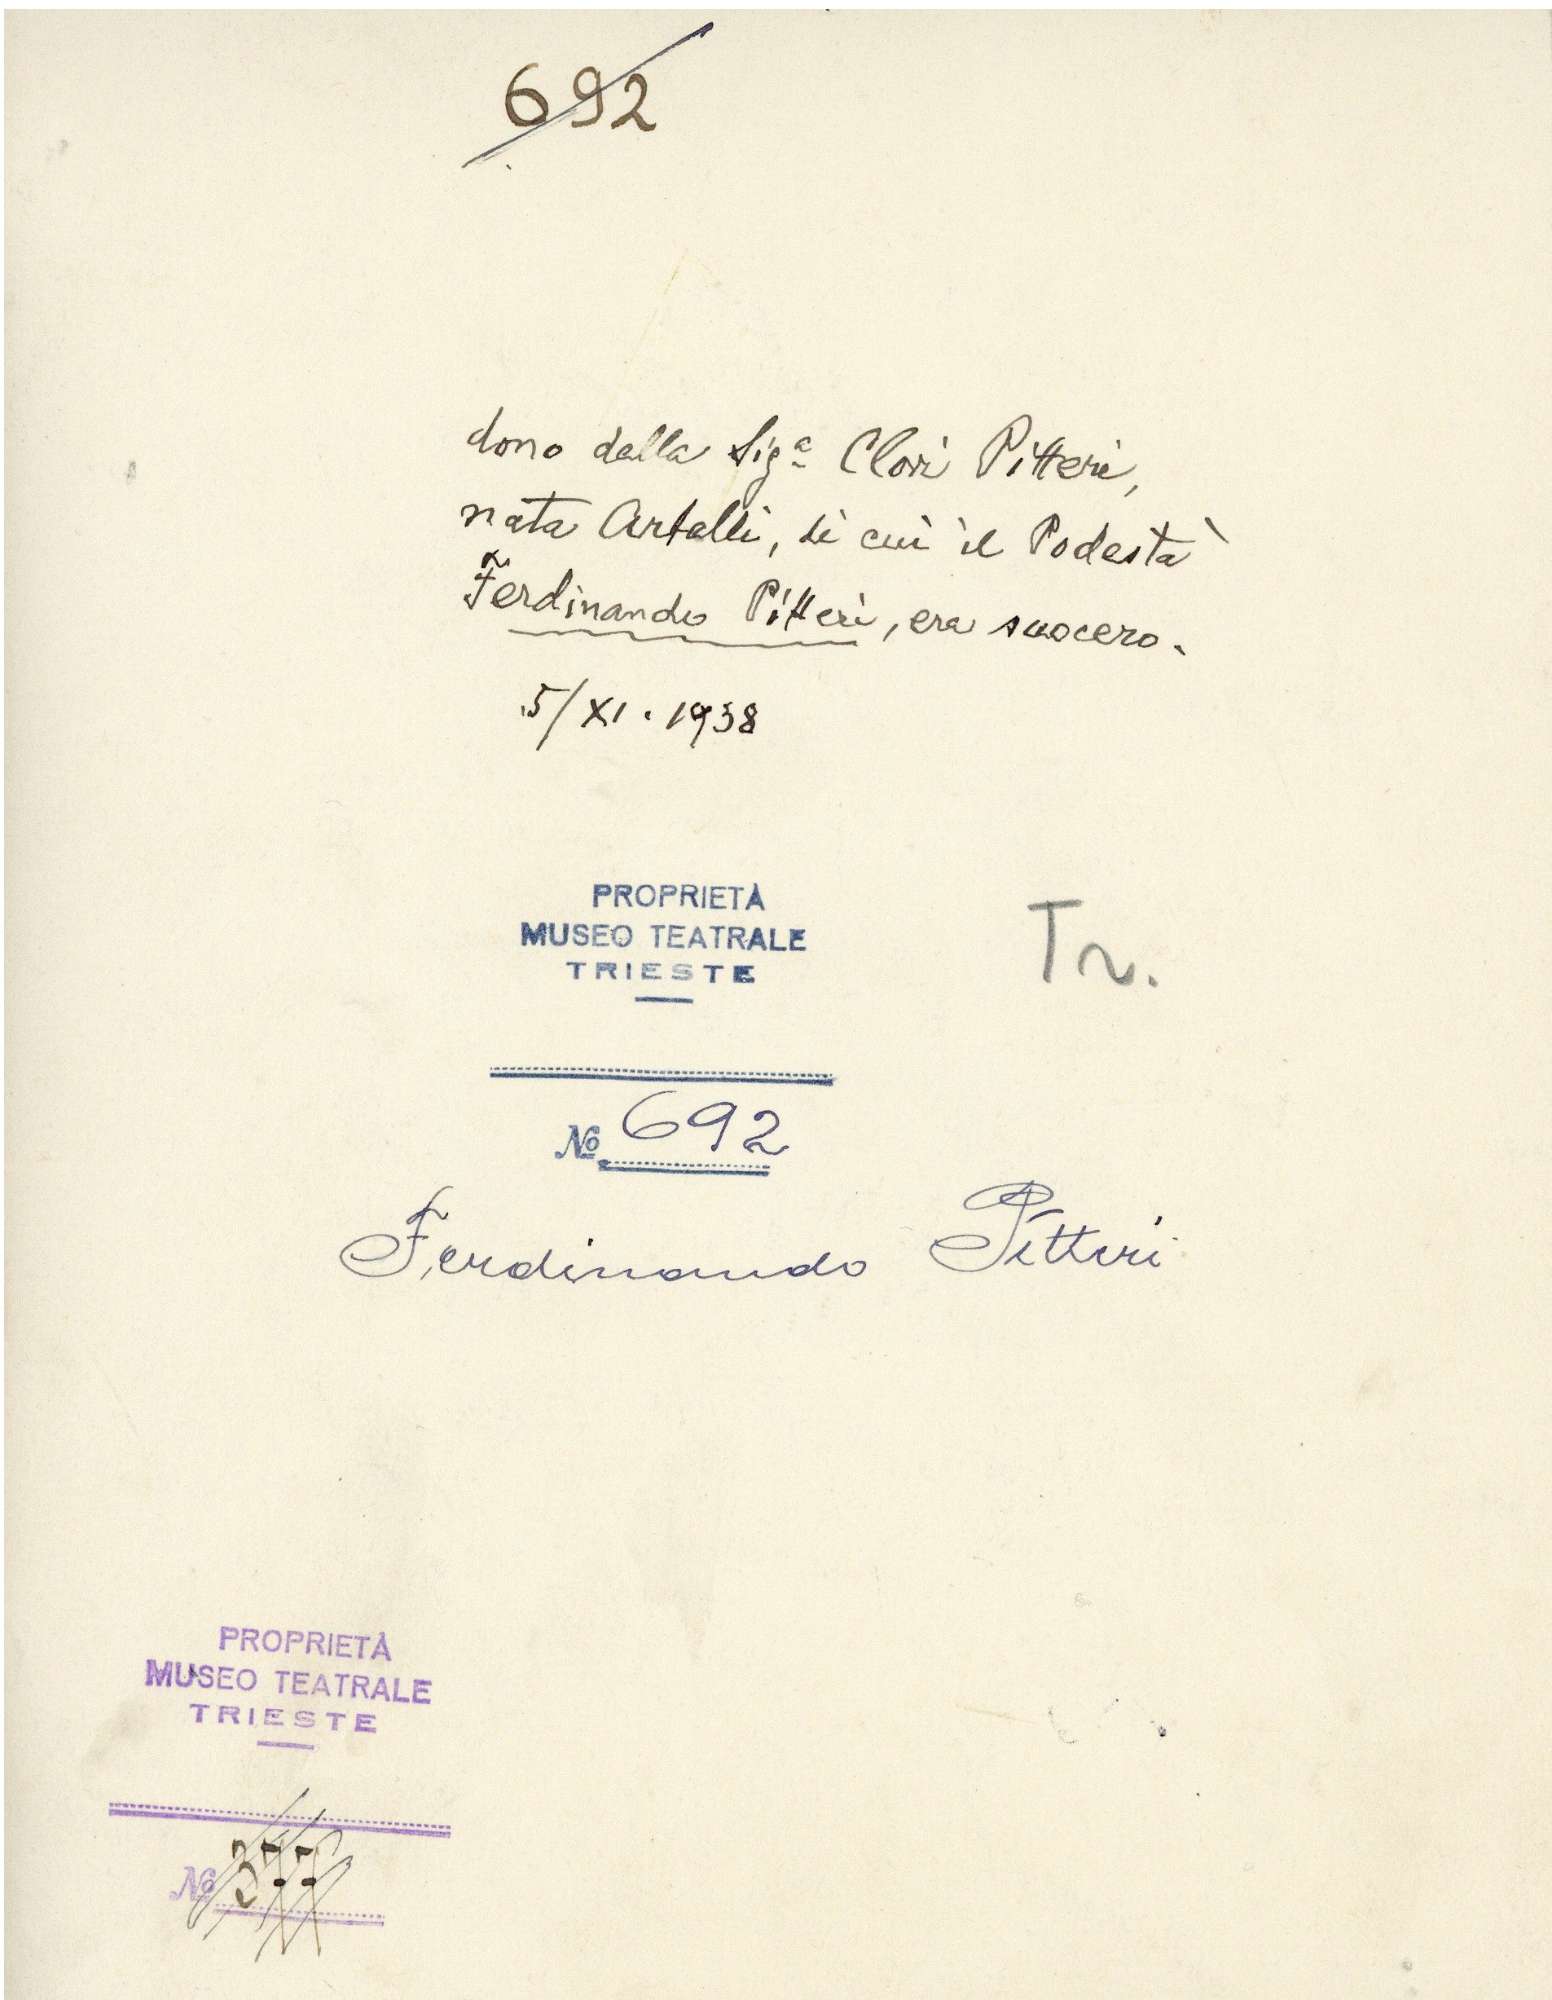 692
dono dalla Sig.ª Clori Pitteri,
nata Artelli, di cui il Podestà
Ferdinando Pitteri, era suocero.
5/XI. 1938
PROPRIETÀ
MUSEO TEATRALE
TRIESTE
Tr.
No. 692
Ferdinando Pitteri
PROPRIETÀ
MUSEO TEATRALE
TRIESTE
No 377